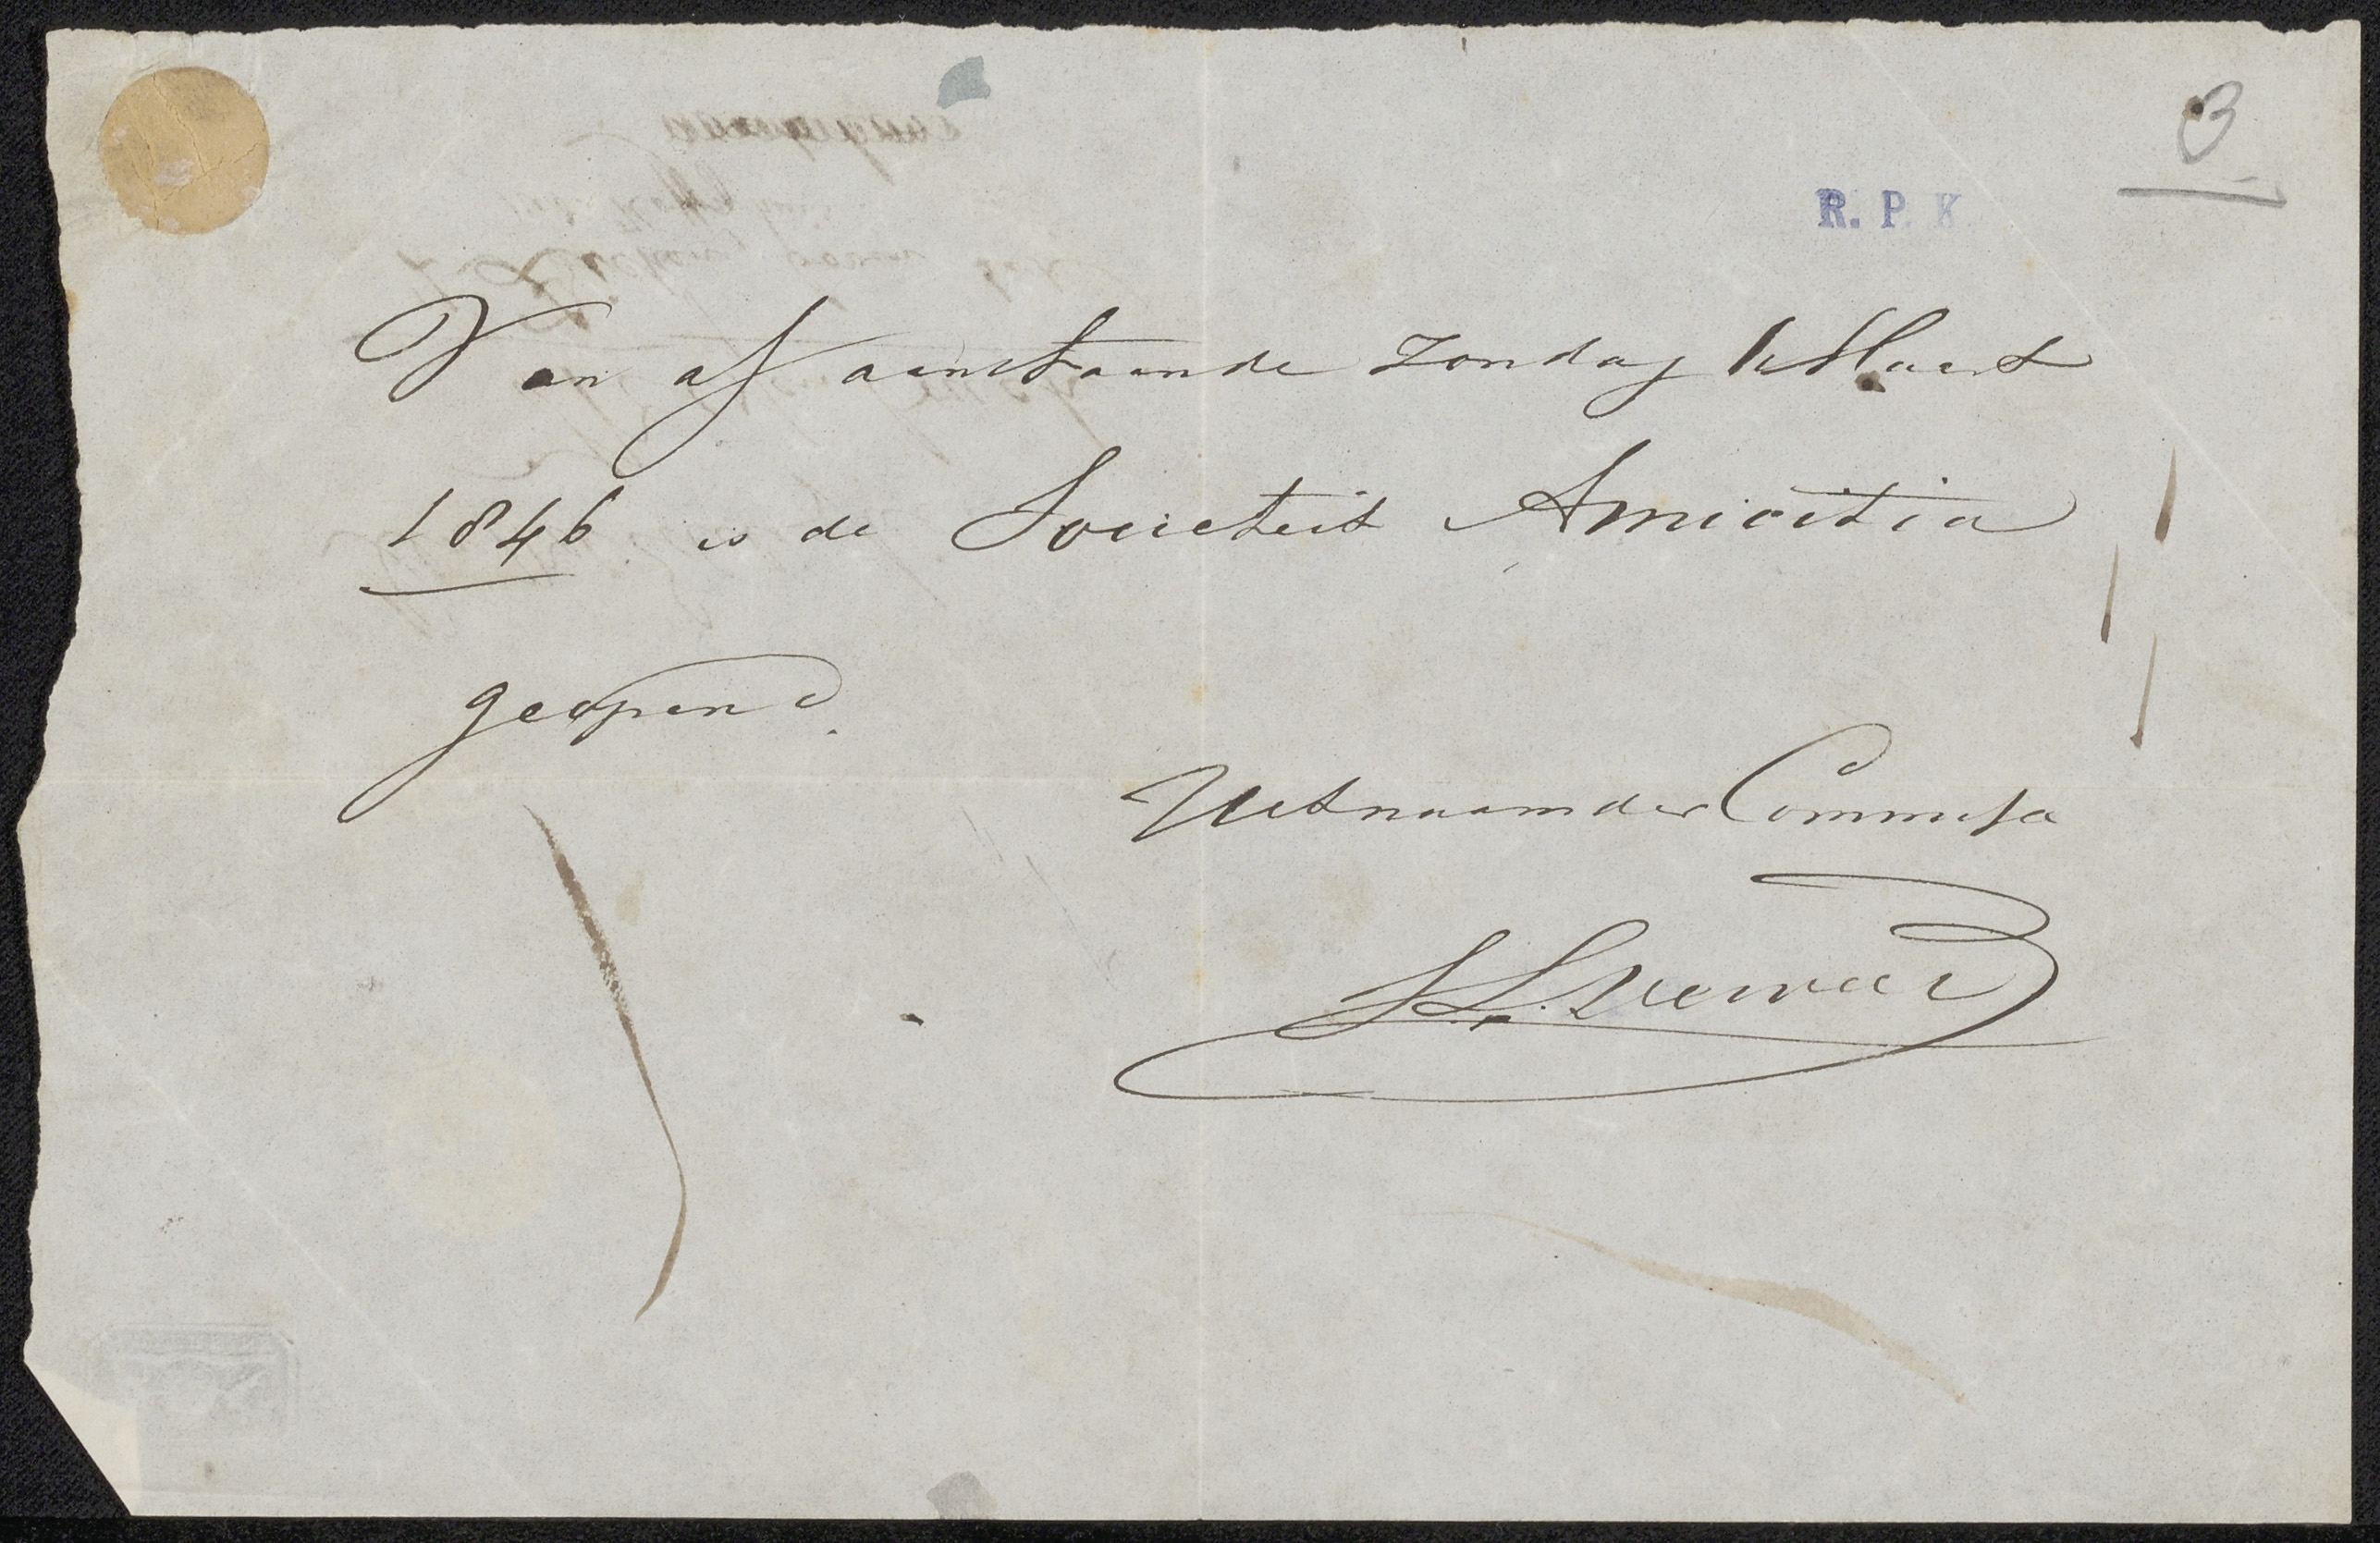 3
R. P. K
Van af aanstaande Zondag 1 Maart
1846 is de Societeit Amicitia
geopend.
Uit naam der Commissie
S. L. Verveer